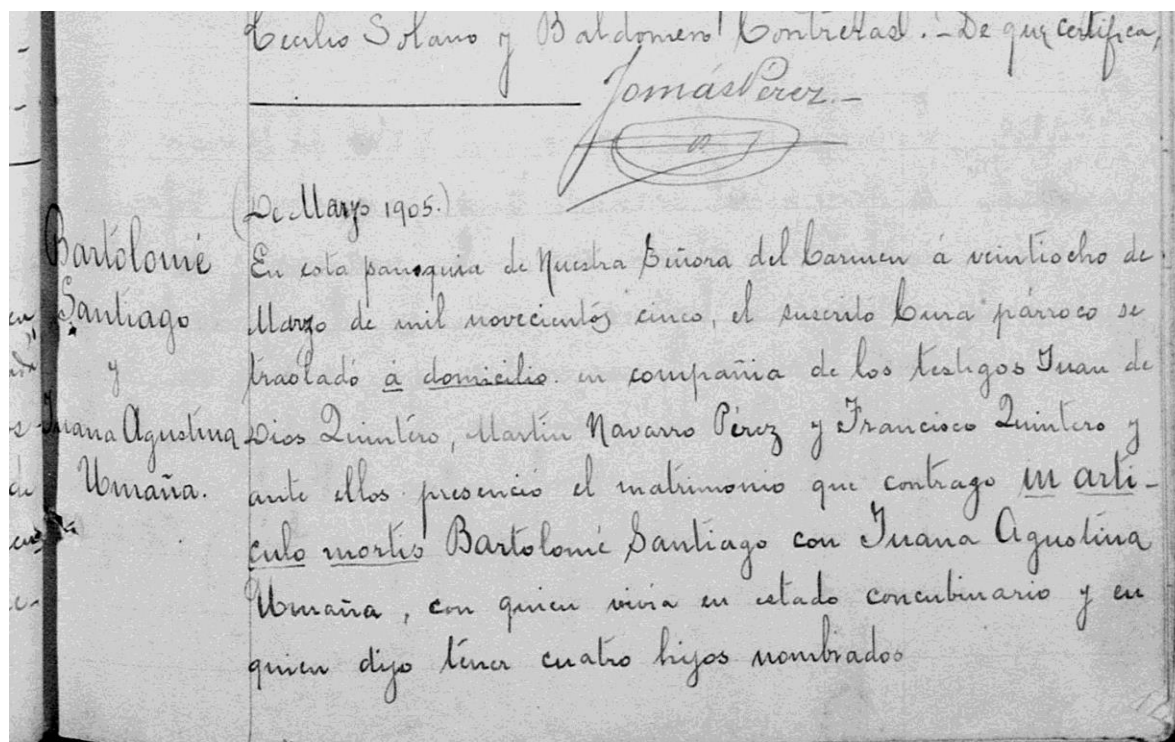 Cecilio Solano y Baldomero Contreras. - De que certifica,
Tomás Pérez. -
(De Marzo 1905.)
Bartolomé
Santiago
y
Juana Agustina
Umaña.
En esta parroquia de Nuestra Señora del Carmen á veintiocho de
Marzo de mil novecientos cinco, el suscrito Cura párroco se
trasladó á domicilio en compañia de los testigos Juan de
Dios Quintéro, Martín Navarro Pérez y Francisco Quintero y
ante ellos presenció el matrimonio que contrago in arti-
culo mortis Bartolomé Santiago con Juana Agustina
Umaña, con quien vivia en estado concubinario y en
quien dijo téner cuatro hijos nombrados